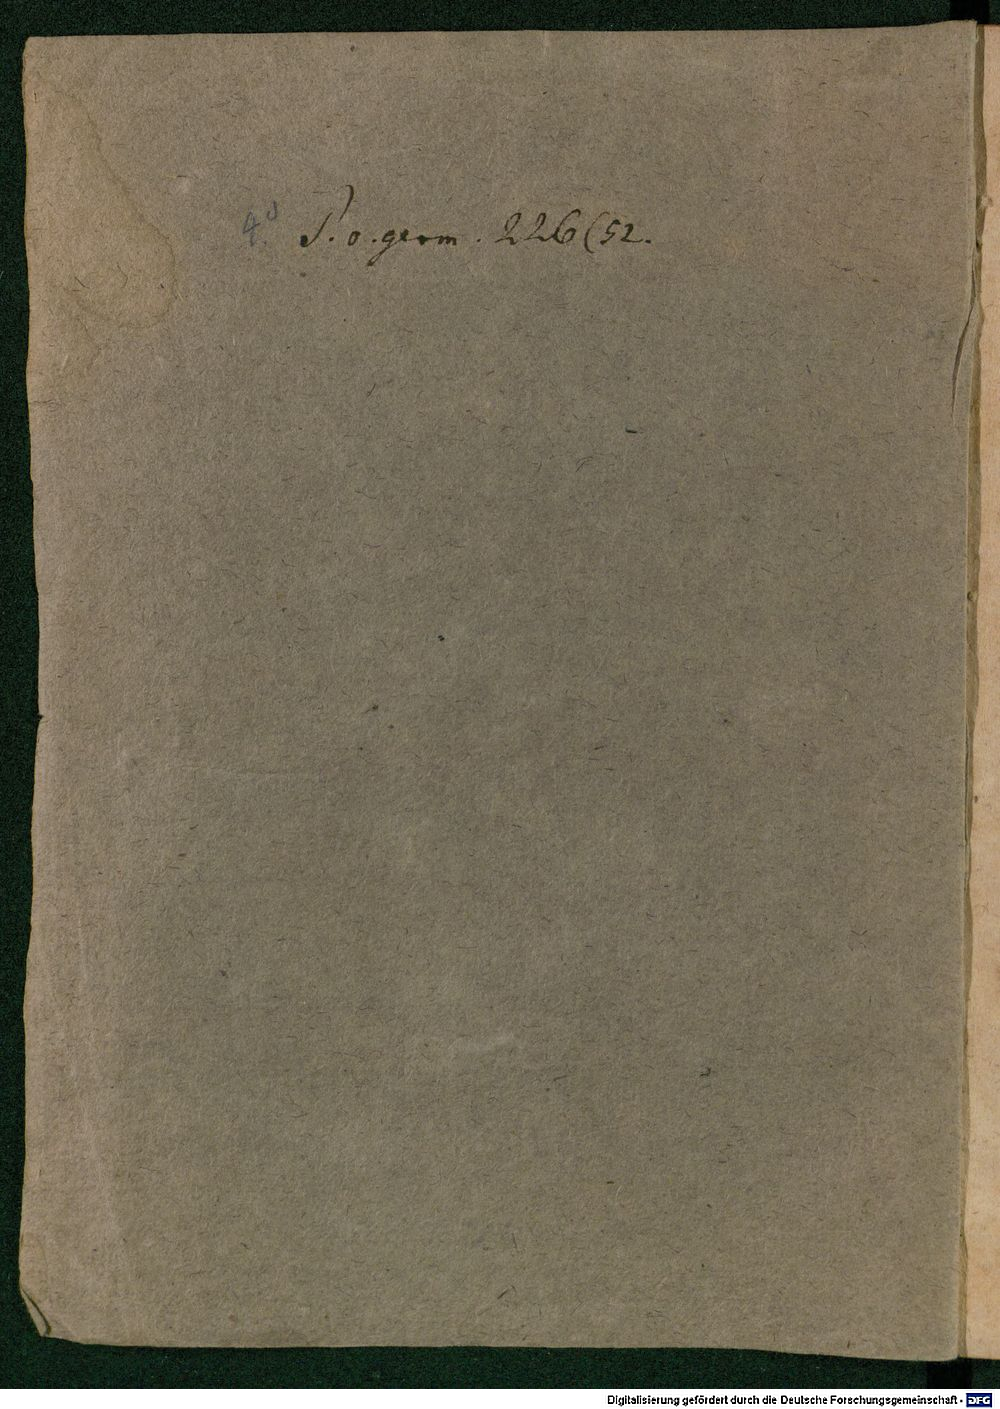 4° P. o. germ. 226 (52.
Digitalisierung gefördert durch die Deutsche Forschungsgemeinschaft - DFG